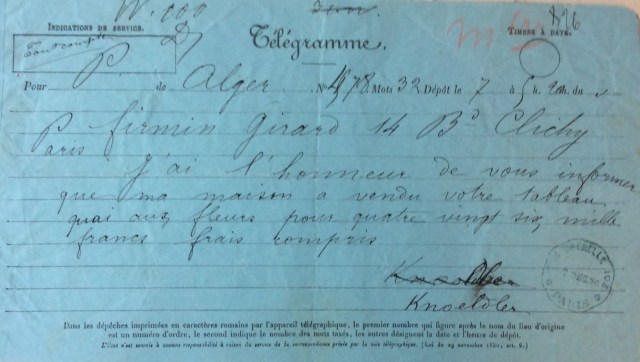 INDICATIONS DE SERVICE.
Télégramme.
TIMBRE À DATE.
Pour P de Alger N° 478 Mots 32 Dépôt le 7 à 5 h. 20 m. du s
Paris Firmin Girard 14 Bd Clichy
J'ai l'honneur de vous informer
que ma maison a vendu votre tableau
quai aux fleurs pour quatre vingt six mille
francs frais compris
Knoeldler
Dans les dépêches imprimées en caractères romains par l'appareil télégraphique, le premier nombre qui figure après le nom du lieu d'origine
est un numéro d'ordre, le second indique le nombre des mots taxés, les autres désignent la date et l'heure de dépôt.
L'État n'est soumis à aucune responsabilité à raison du service de la correspondance privée par la voie télégraphique. (Loi du 29 novembre 1850, art. 6.)